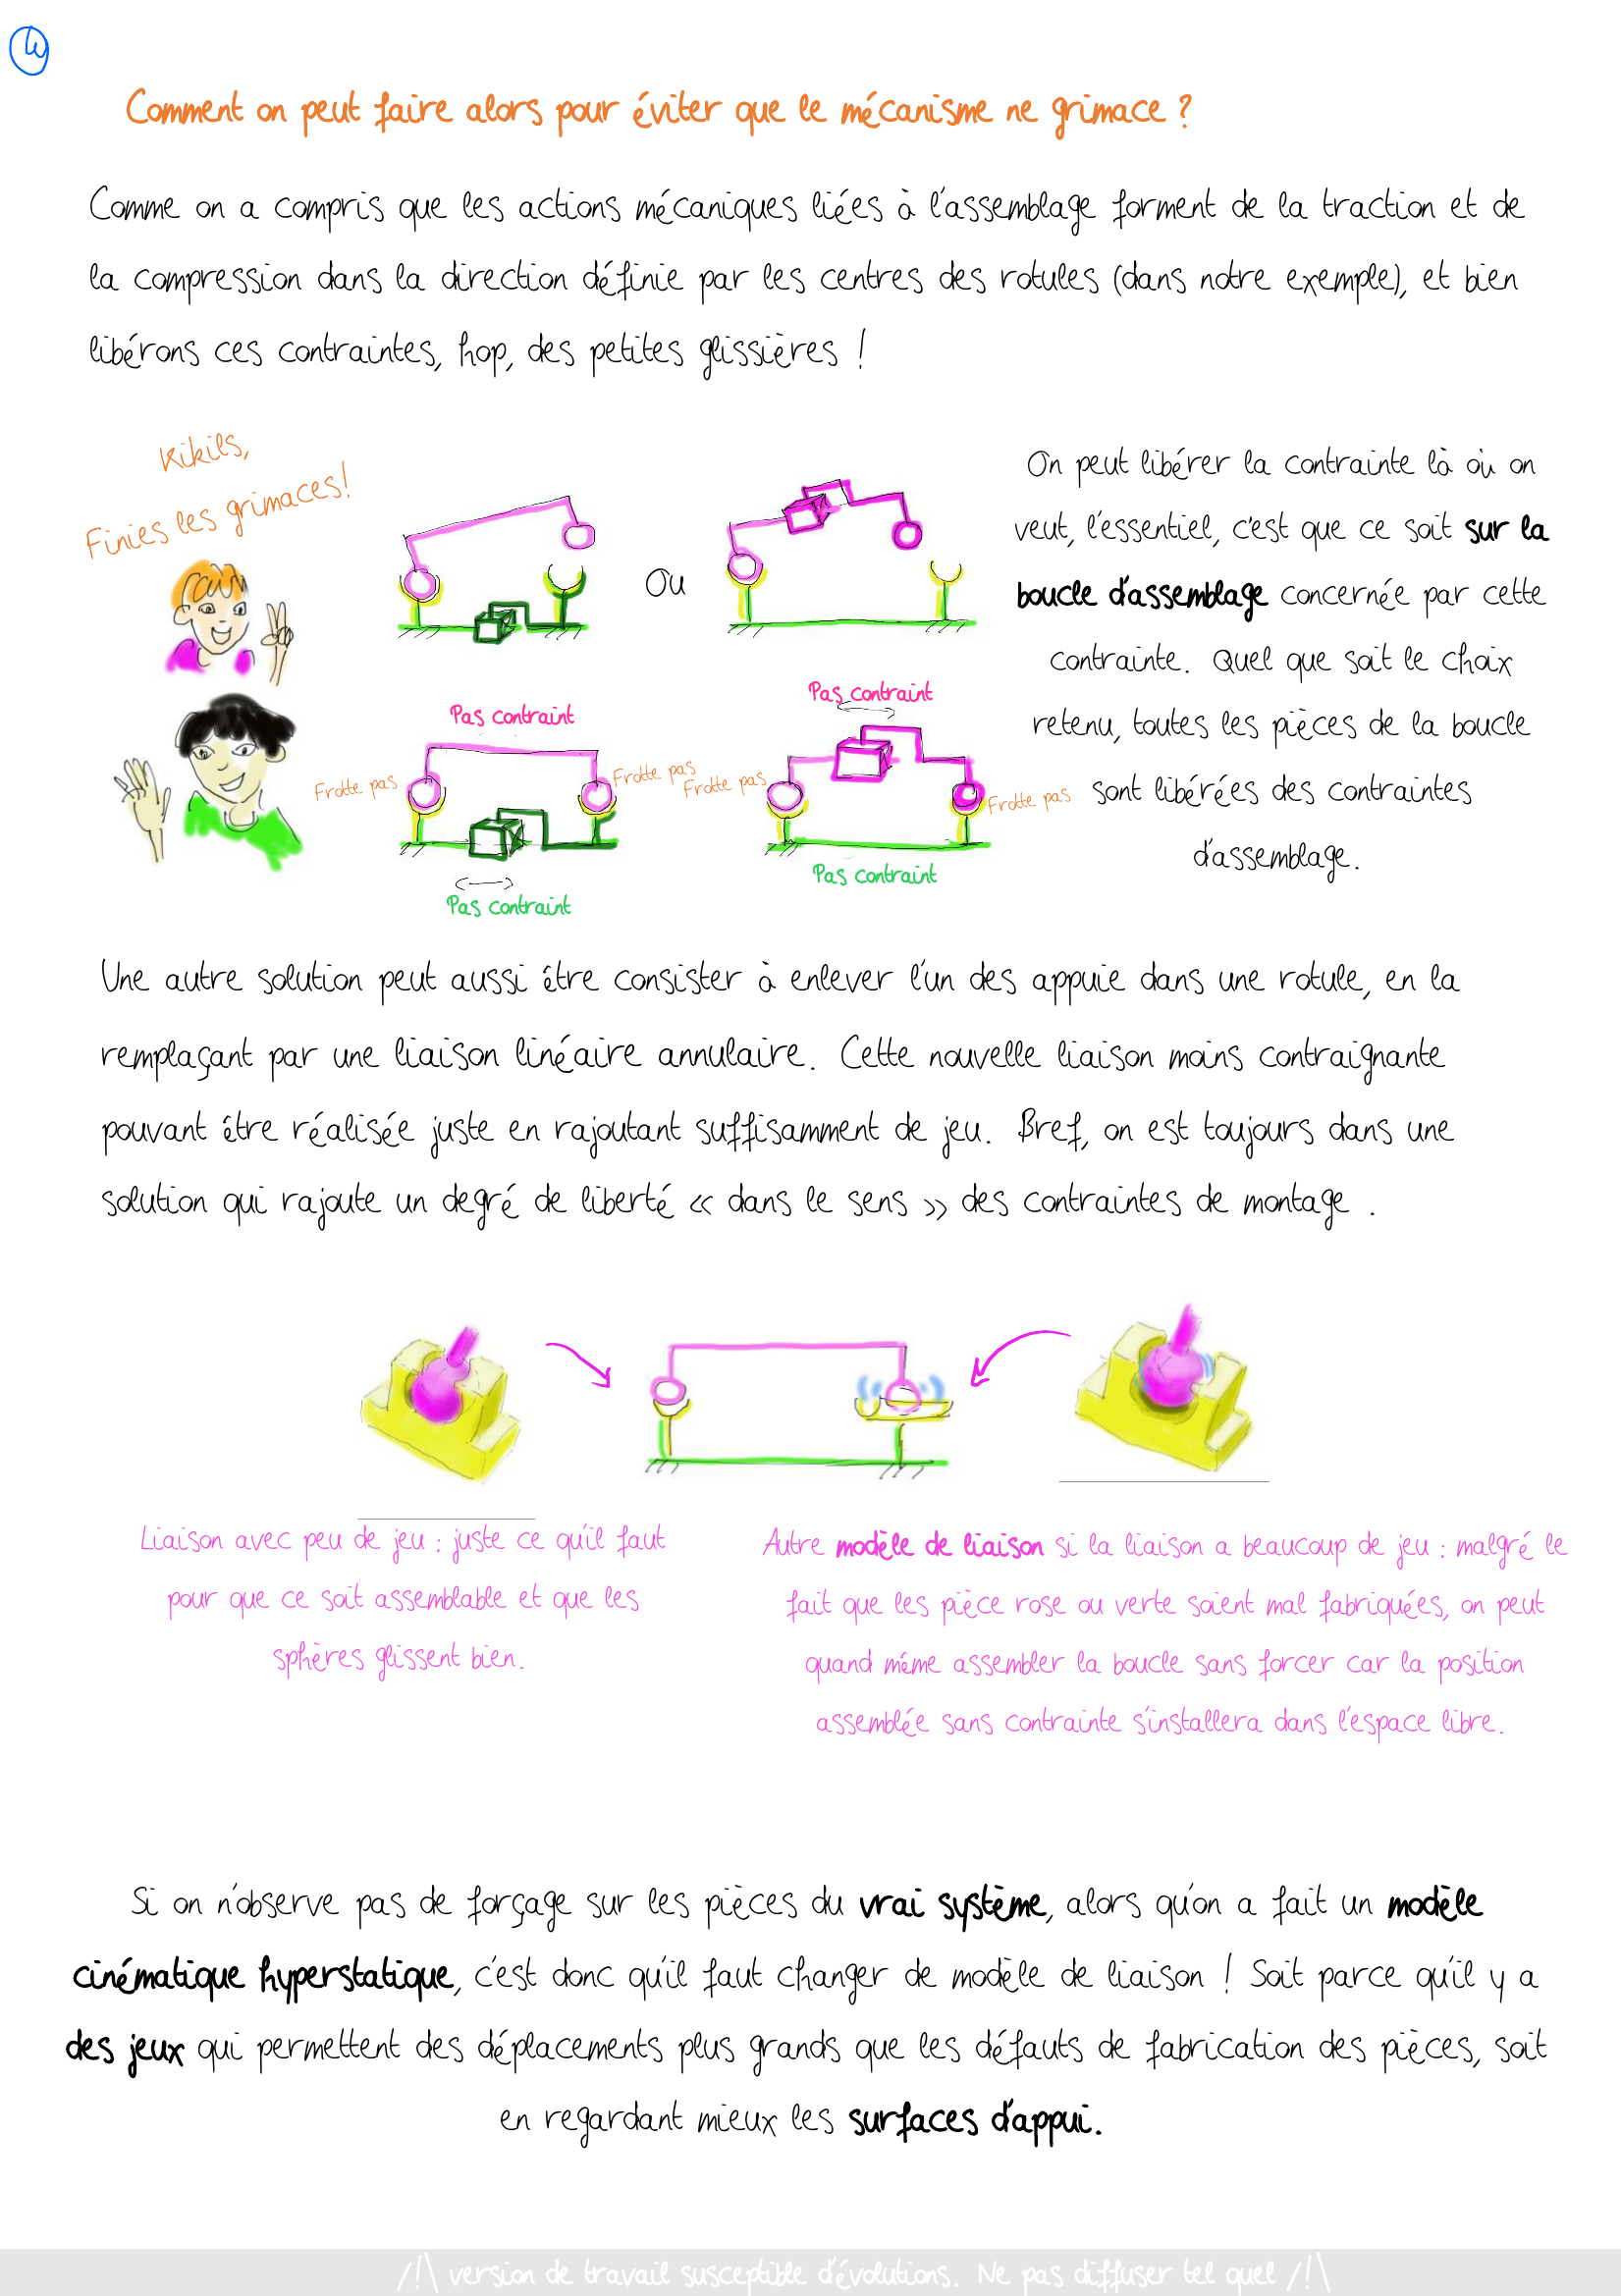 4
Comment on peut faire alors pour éviter que le mécanisme ne grimace ?
Comme on a compris que les actions mécaniques liées à l'assemblage forment de la traction et de
la compression dans la direction définie par les centres des rotules (dans notre exemple), et bien
libérons ces contraintes, hop, des petites glissières !
Kikils,
Finies les grimaces!
Ou
On peut libérer la contrainte là où on
veut, l'essentiel, c'est que ce soit sur la
boucle d'assemblage concernée par cette
contrainte. Quel que soit le choix
retenu, toutes les pièces de la boucle
sont libérées des contraintes
d'assemblage.
Pas contraint
Frotte pas
Frotte pas
Pas contraint
Pas contraint
Frotte pas
Frotte pas
Pas contraint
Une autre solution peut aussi être consister à enlever l'un des appuie dans une rotule, en la
remplaçant par une liaison linéaire annulaire. Cette nouvelle liaison moins contraignante
pouvant être réalisée juste en rajoutant suffisamment de jeu. Bref, on est toujours dans une
solution qui rajoute un degré de liberté « dans le sens » des contraintes de montage .
Liaison avec peu de jeu : juste ce qu'il faut
pour que ce soit assemblable et que les
sphères glissent bien.
Autre modèle de liaison si la liaison a beaucoup de jeu : malgré le
fait que les pièce rose ou verte soient mal fabriquées, on peut
quand même assembler la boucle sans forcer car la position
assemblée sans contrainte s'installera dans l'espace libre.
Si on n'observe pas de forçage sur les pièces du vrai système, alors qu'on a fait un modèle
cinématique hyperstatique, c'est donc qu'il faut changer de modèle de liaison ! Soit parce qu'il y a
des jeux qui permettent des déplacements plus grands que les défauts de fabrication des pièces, soit
en regardant mieux les surfaces d'appui.
/!\ version de travail susceptible d'évolutions. Ne pas diffuser tel quel /!\